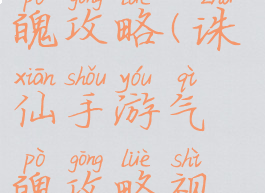 pò gōng lüè zhū
魄攻略(诛
xiān shǒu yóu qì
仙手游气
pò gōng lüè shì
魄攻略视